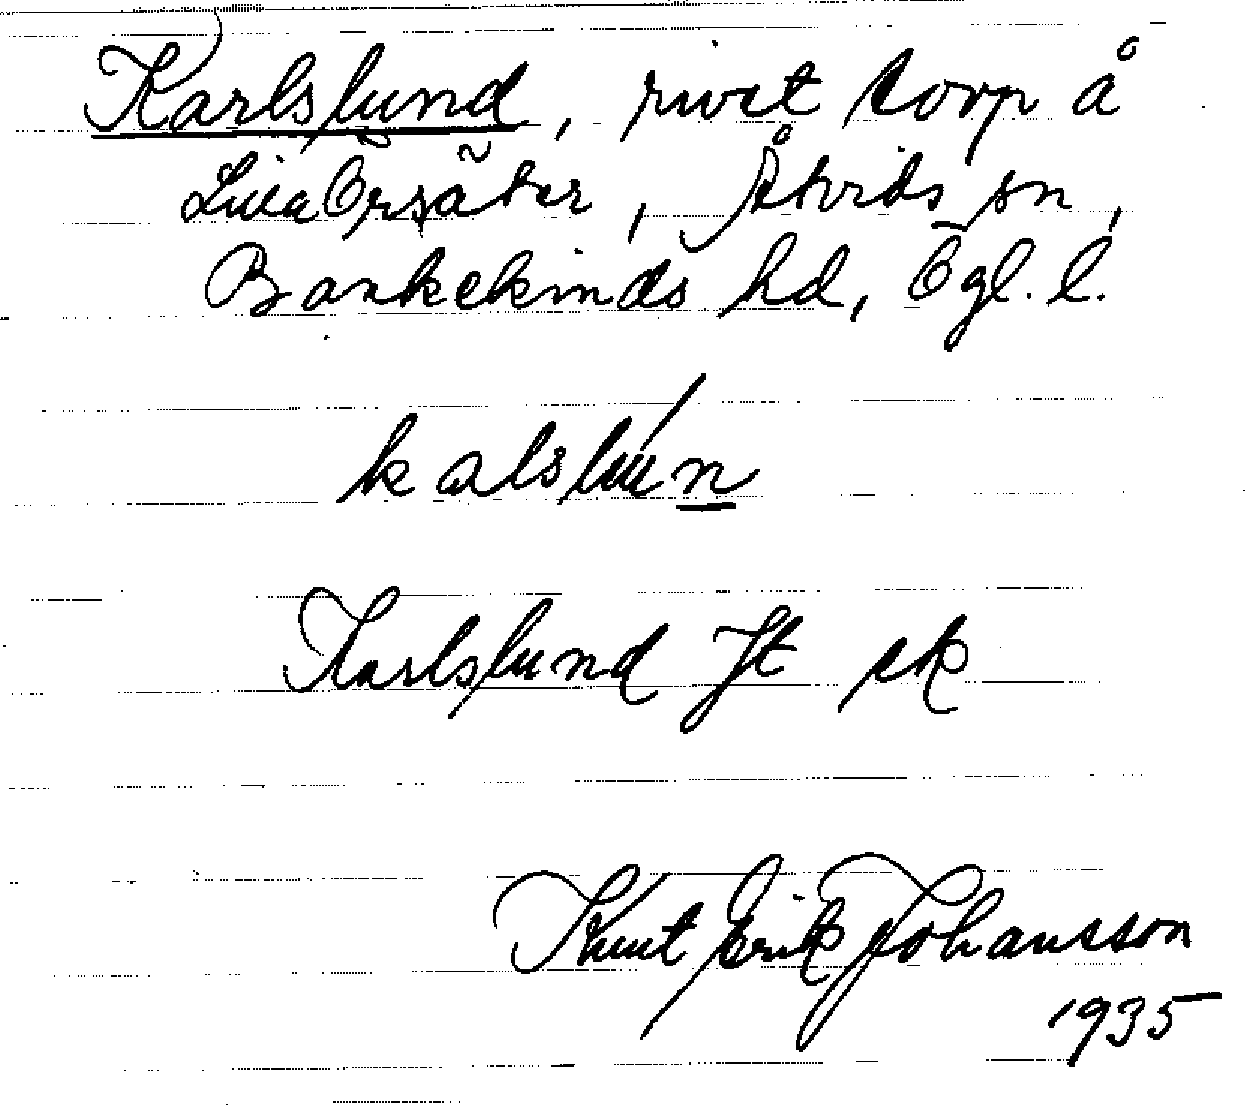 Karlslund, rivet torp å
Lilla Örsäter, Åtvids sn,
Bankekinds hd, Ögl. l.
kalslun
Karlslund Jt ek
Knut Erik Johansson
1935